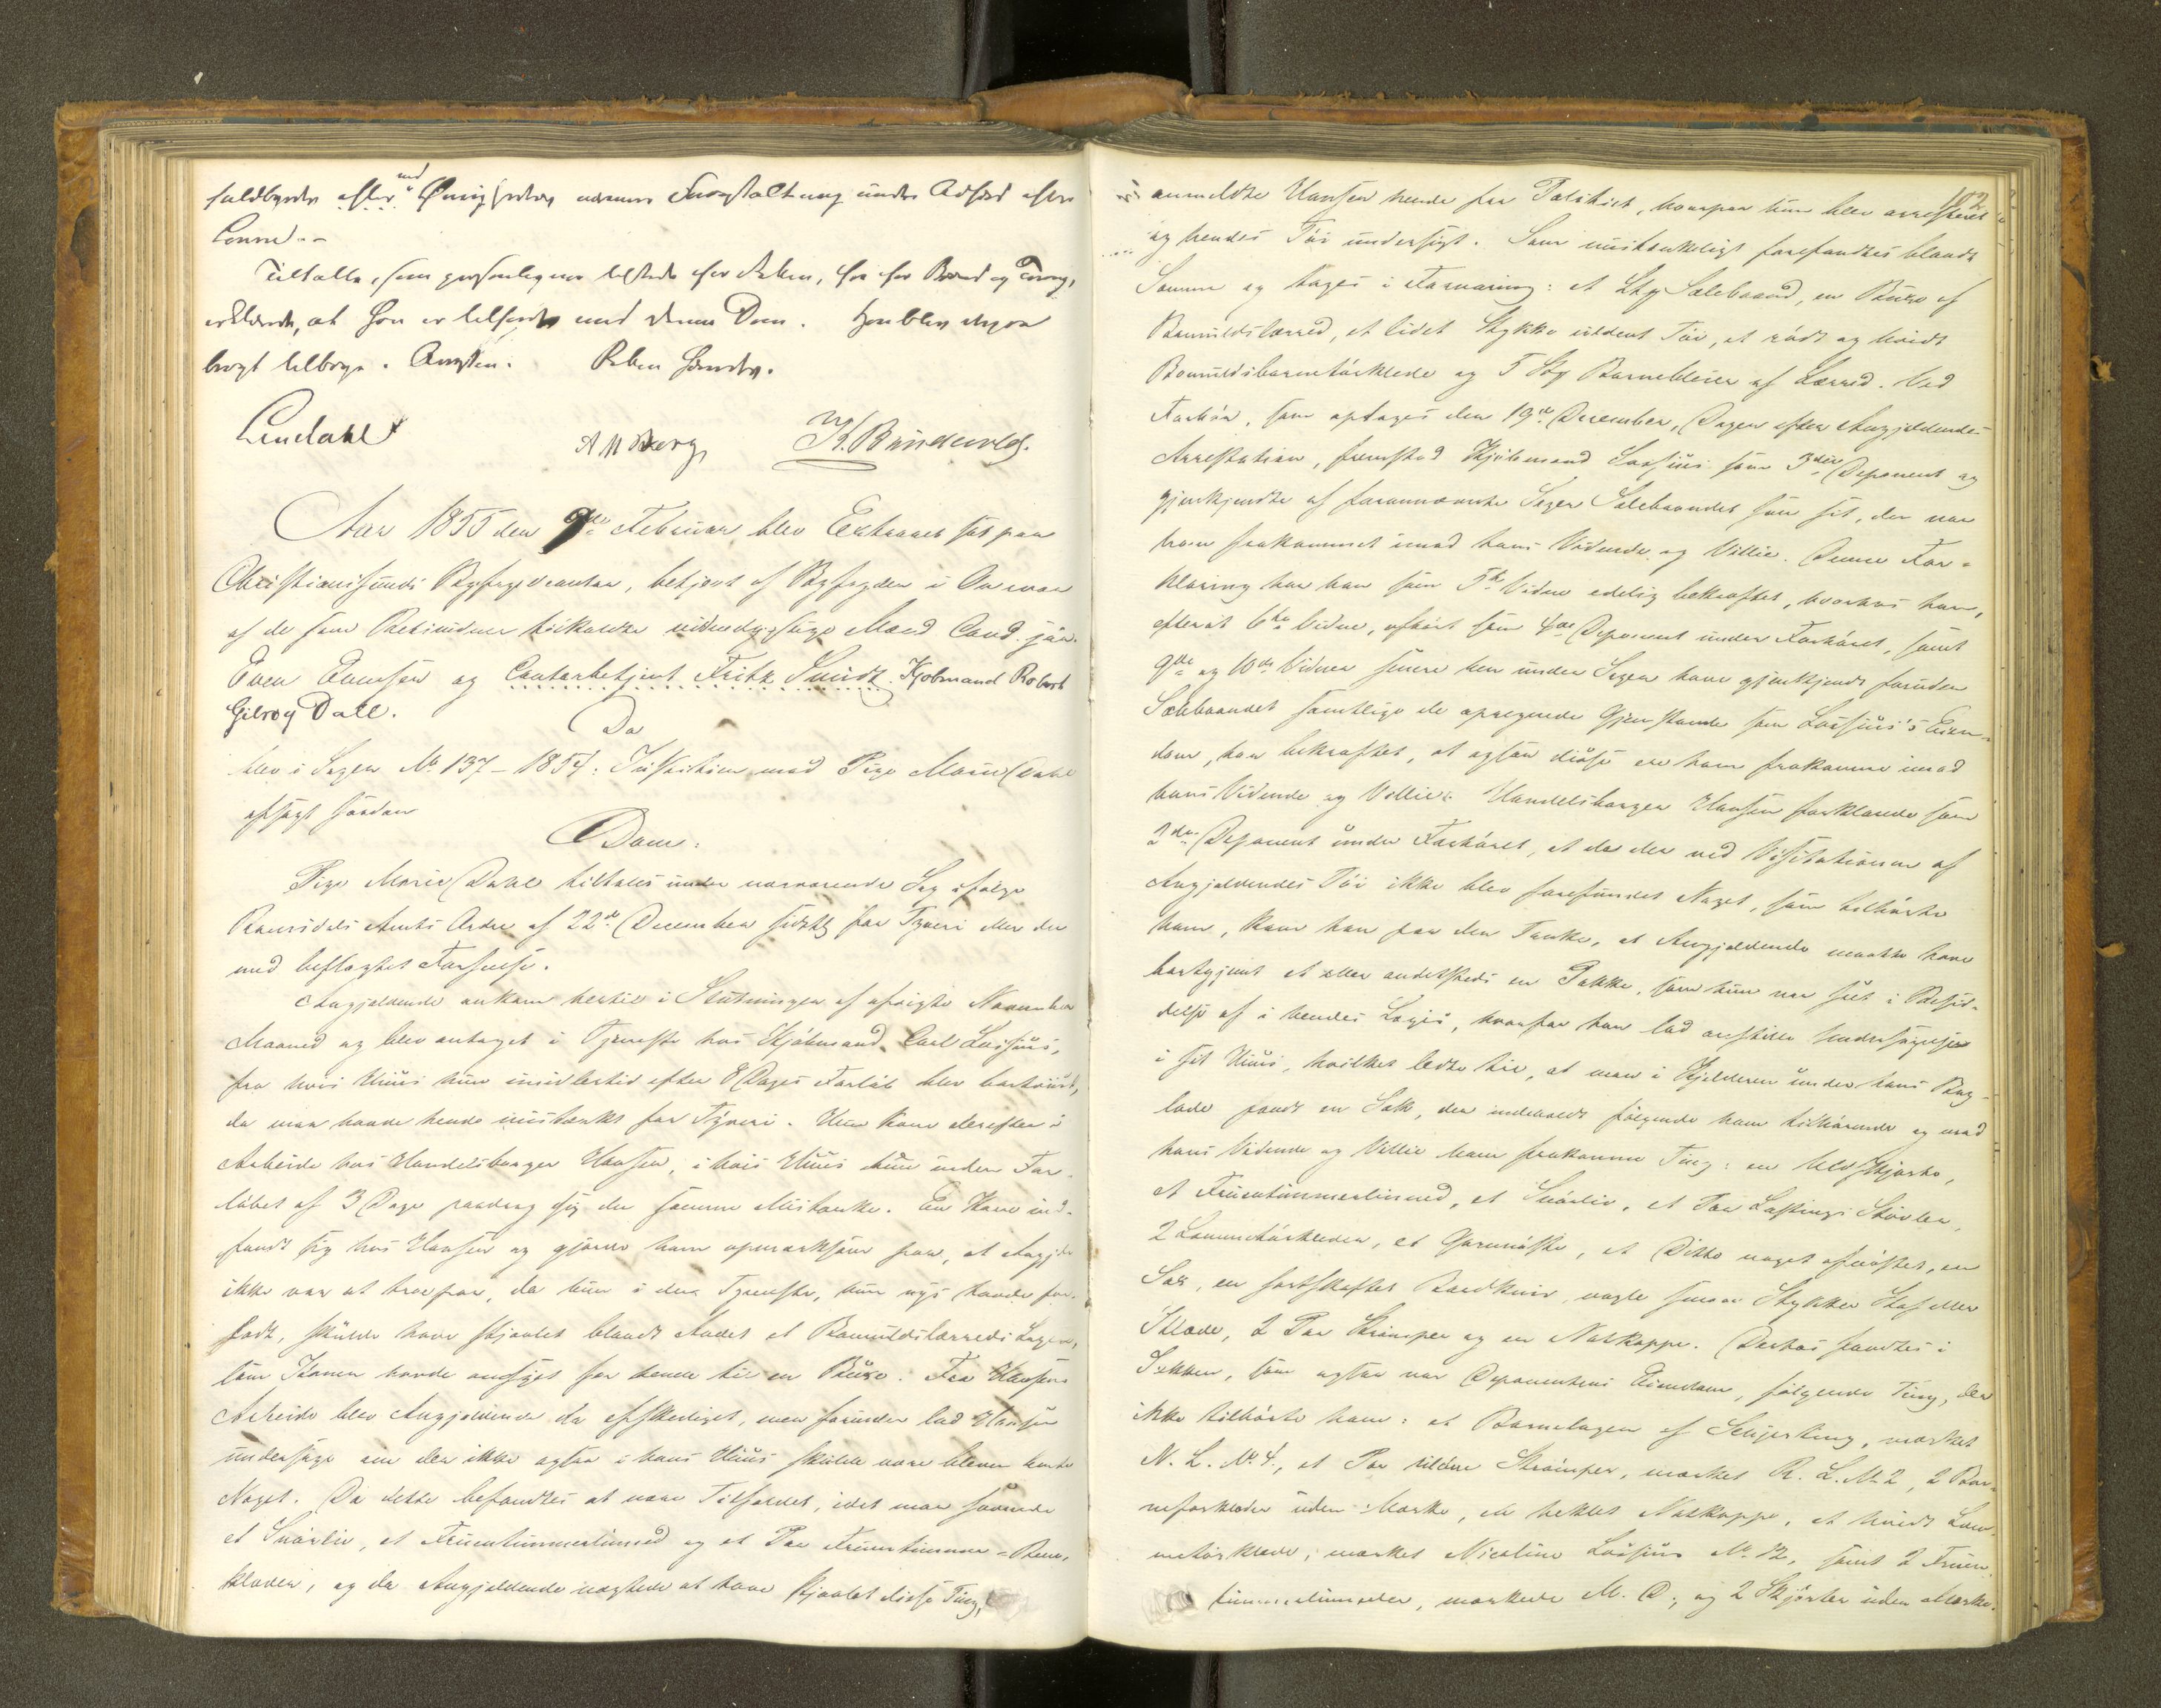 fuldbyrdes efter Øvrighedens nærmere Foranstaltning under Adfærd efter
Loven.
Tiltalte, som personligen tilstede for Retten, fri for Baand og Tvang,
erklærede, at hun er tilfreds med denne Dom. Hun blev derpaa
bragt tilbage. Retten hævet.
Lindahl
A M Berg K. Bündervold.
Aar 1855 den 9de Februar blev Extraret sat paa
Christiansunds Byfogedcontor, betjent af Byfogden i Overvær
af de som Retsvidner tilkaldte vidnedygtige Mænd Cand. jur.
Even Evensen og Contorbetjent Fritz Smidt. Kjøbmand Robert
Gilroy Dall.
Da
blev i Sagen No 137 – 1854: Justitien mod Pige Marie Dahl
afsagt saadan
Dom:
Pige Marie Dahl tiltales under nærværende Sag ifølge
Romsdals Amts Ordre af 22de December sidstl. for Tyveri eller der
med beslægtet Forseelse.
Angjeldende ankom hertil i Slutningen af afvigte November
Maaned og blev antaget i Tjeneste hos Kjøbmand Carl Lossius,
fra hvis Huus hun imidlertid efter 8 Dages Forløb blev bortviist,
da man havde hende mistænkt for Tyveri. Hun kom derefter i
Arbeide hos Handelsborger Hansen, i hvis Huus hun inden For-
løbet af 3 Dage paadrog sig den samme Mistanke. En Kone ind-
fandt sig hos Hansen og gjorde ham opmærksom paa, at Angjde
ikke var at troe paa, da hun i den Tjeneste, hun nys havde for-
ladt, skulde have stjaalet blandt Andet et Bomuldslærreds Lagen,
som Konen havde omsyet for hende til en Buxe. Fra Hansens
Arbeide blev Angjeldende da afskediget, men forinden lod Hansen
undersøge om der ikke ogsaa i hans Huus skulde være bleven borte
Noget. Da dette befandtes at være Tilfældet, idet man savnede
et Snørliv, et Fruentimmerlinned og et Par Fruentimmer-Been-
klæder, og da Angjeldende nægtede at have stjaalet disse Ting,
102
anmeldte Hansen hende for Politiet, hvorpaa hun blev arresteret
og hendes Tøi undersøgt. Som mistænkeligt forefandtes blandt
Samme og toges i Forvaring: et Stk. Salebaand, en Buxe af
Bomuldslærred, et lidet Stykke uldent Tøi, et rødt og hvidt
Bomuldsbarnetørklæde og 5 Stk Barnebleier af Lærred. Ved
Forhør, som optoges den 19de December, Dagen efter Angjeldendes
Arrestation, fremstod Kjøbmand Lossius som 3die Deponent og
gjenkjendte af forannævnte Sager Salebaandet som sit, der var
ham frakommet imod hans Vidende og Villie. Denne For=
klaring har han som 5te Vidne edelig bekræftet, hvorhos han,
efterat 6te Vidne, afhørt som 4de Deponent under Forhøret, samt
9de og 10de Vidner senere hen under Sagen have gjenkjendt foruden
Salebaandet samtlige de opregnede Gjenstande som Lossius's Eien-
dom, har bekræftet, at ogsaa disse ere ham frakomne imod
hans Vidende og Villie. Handelsborger Hansen forklarede som
2den Deponent under Forhøret, at da der ved Visitationen af
Angjeldendes Tøi ikke blev forefundet Noget, som tilhørte
ham, kom han paa den Tanke, at Angjeldende maatte have
bortgjemt et eller andetsteds en Pakke, som hun var seet i Besid-
delse af i hendes Logis, hvorfor han lod anstille Undersøgelse
i sit Huus, hvilket ledte til, at man i Kjelderen under hans Kog-
lade fandt en Sæk, der indeholdt følgende ham tilhørende og mod
hans Vidende og Villie ham frakomne Ting: en Ulvskjorte,
et Fruentimmerlinned, et Snørliv, et Par Lastings Støvler,
2 Lommetørklæder, et Garnnøste, et Ditto noget afnøstet, en
Sax, en sortskaftet Bordkniv, nogle smaae Stykker Stof eller
Klæde, 2 Par Strømper og en Natkappe. Derhos fandtes i
Sækken, som ogsaa var Deponentens Eiendom, følgende Ting, der
ikke tilhørte ham: et Barnelagen af Schjerting, mærket
N. L. No 4., et Par uldne Strømper, mærket R. L. No 2, 2 Bar-
neforklæder uden Mærke, en heklet Natkappe, et hvidt Lom-
metørklæde, mærket Nicoline Lossius No 12, samt 2 Fruen-
timmerlinneder, mærkede M. D., og 2 Skjorter uden Mærke.